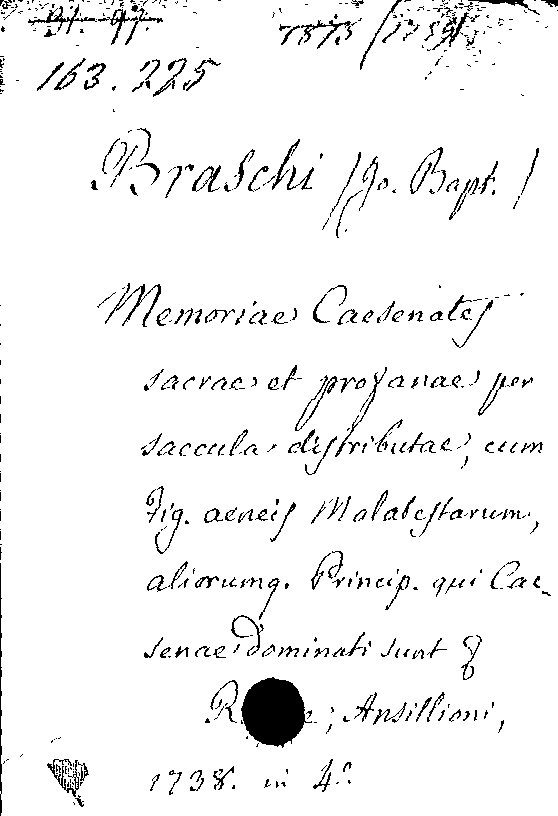 163.225
Braschi (Jo. Bapt.)
Memoriae Caesenates
sacrae et profanae per
saecula distributae, cum
Fig. aeneis Malatestarum,
aliorumq. Princip. qui Cae-
senae dominati sunt
Ansillioni,
1738. in 4.º